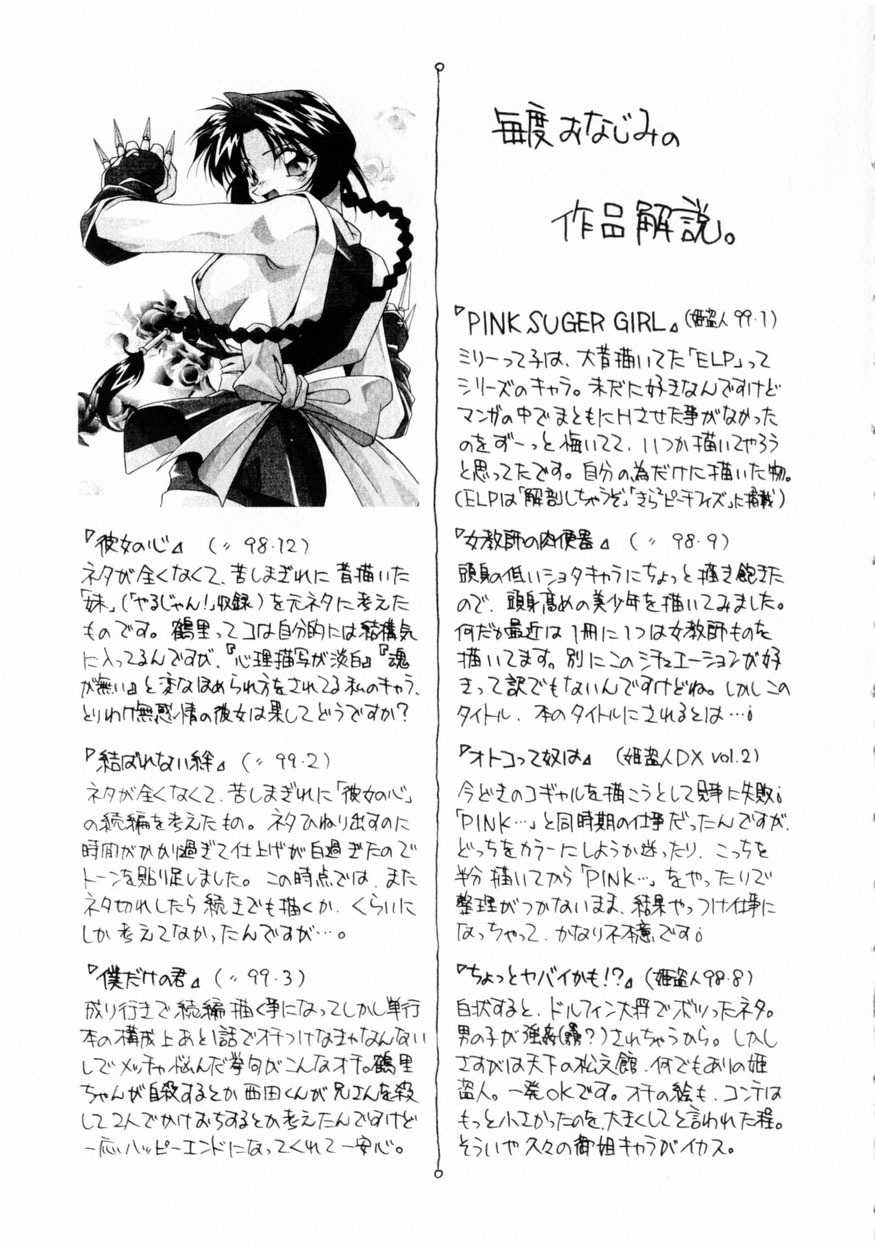 毎度おなじみの
作品解説。
『PINK SUGER GIRL』(姫盗人99・1)
ミリーって子は、大昔描いてた「ELP」って
シリーズのキャラ。未だに好きなんですけど
マンガの中でまともにHさせた事がなかった
のをずーっと悔いてて、いつか描いてやろう
と思ってたです。自分の為だけに描いた物。
(ELPは「解剖しちゃうぞ」「きらピーチフィズ」に掲載)
『女教師の肉便器』(〃98・9)
頭身の低いショタキャラにちょっと描き飽きた
ので、頭身高めの美少年を描いてみました。
何だか最近は1冊に1つは女教師ものを
描いてます。別にこのシチュエーションが好
きって訳でもないんですけどね。しかしこの
タイトル、本のタイトルにされるとは…。
『オトコって奴は』(姫盗人DX vol.2)
今どきのコギャルを描こうとして見事に失敗。
「PINK…」と同時期の仕事だったんですが、
どっちをカラーにしようか迷ったり、こっちを
半分描いてから「PINK…」をやったりで
整理がつかないまま、結果やっつけ仕事に
なっちゃって、かなり不本意です。
『ちょっとヤバイかも!?』(姫盗人98・8)
白状すると、ドルフィン大将でボツったネタ。
男の子が強姦(?)されちゃうから。しかし
さすがは天下の松文館、何でもありの姫
盗人。一発OKです。オチの絵も、コンテは
もっと小さかったのを、大きくしてと言われた程。
そういや久々の御姐キャラがイカス。
『彼女の心』(〃98・12)
ネタが全くなくて、苦しまぎれに昔描いた
「妹」(「やるじゃん!」収録)を元ネタに考えた
ものです。鶴里ってコは自分的には結構気
に入ってるんですが、『心理描写が淡白』『魂
が無い』と変なほめられ方をされてる私のキャラ、
とりわけ無感情の彼女は果してどうですか?
『結ばれない絆』(〃99・2)
ネタが全くなくて、苦しまぎれに「彼女の心」
の続編を考えたもの。ネタひねり出すのに
時間がかかり過ぎて仕上げが白過ぎたので
トーンを貼り足しました。この時点では、また
ネタ切れしたら続きでも描くか、くらいに
しか考えてなかったんですが…。
『僕だけの君』(〃99・3)
成り行きで続編描く事になってしかし単行
本の構成上あと1話でオチつけなきゃなんない
しでメッチャ悩んだ挙句がこんなオチ。鶴里
ちゃんが自殺するとか西田くんが兄さんを殺
して2人でかけおちするとか考えたんですけど
一応ハッピーエンドになってくれて一安心。